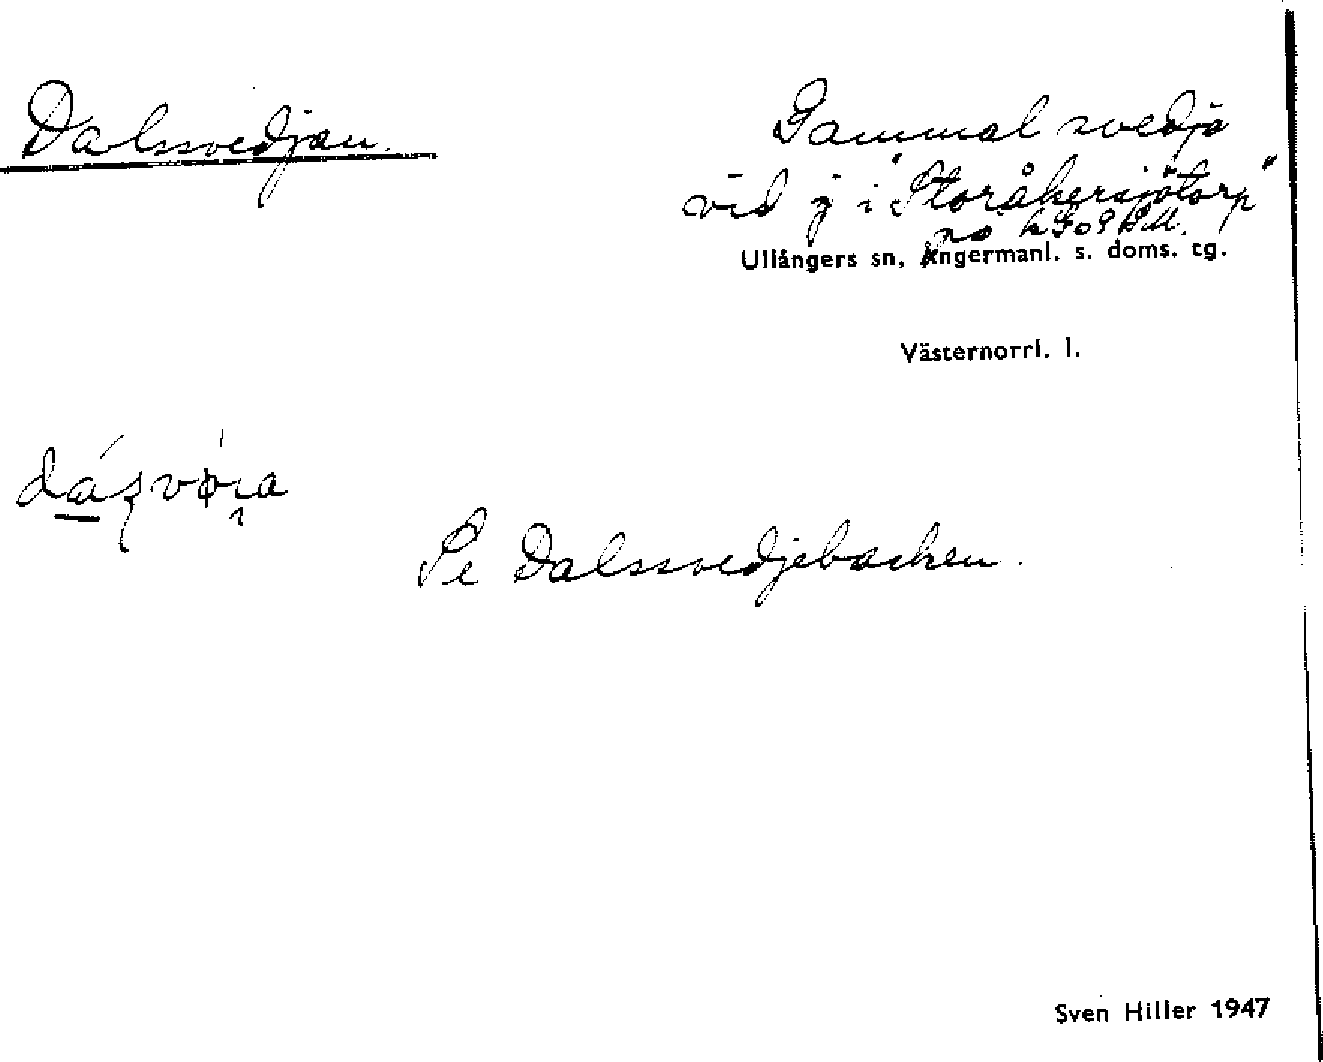 Dalssvedjan.
Gammal svedja
vid j i "Storåkersjötorp"
no
Ullångers sn, Ångermanl. s. doms. tg.
Västernorrl. l.
Se Dalssvedjebacken.
Sven Hiller 1947